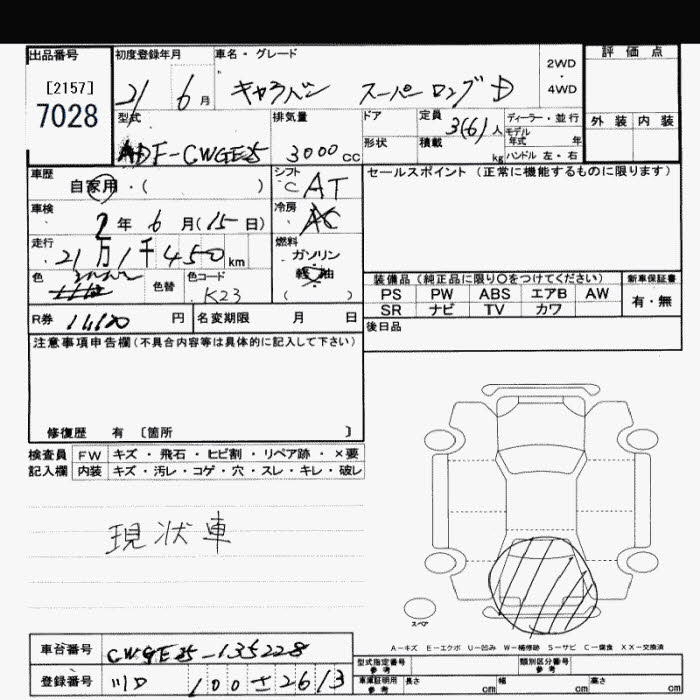 出品番号
[2157]
7028
初度登録年月
21 6月
車名・グレード
キャラバン スーパーロングD
2WD
・
4WD
評価点
外装 内装
型式
DF-CWGE25
排気量
3000cc
ドア
形状
定員
3(6)人
積載
kg
ディーラー・並行
モデル
年式 年
ハンドル 左・右
車歴
自家用・( )
シフト
C AT
冷房
AC
車検
2年6月(15日)
走行
21万1千450km
燃料
ガソリン
軽油
( )
色
色替
色コード
K23
R券
円
名変期限 月 日
セールスポイント(正常に機能するものに限ります)
装備品(純正品に限り○をつけてください)
PS PW ABS エアB AW
SR ナビ TV カワ
新車保証書
有・無
後日品
注意事項申告欄(不具合内容等は具体的に記入して下さい)
修復歴 有 〔箇所 〕
検査員
記入欄
FW キズ・飛石・ヒビ割・リペア跡・×要
内装 キズ・汚レ・コゲ・穴・スレ・キレ・破レ
現状車
スペア
A-キズ E-エクボ U-凹み W-補修跡 S-サビ C-腐食 XX-交換済
車台番号
CWGE25-135228
登録番号
100 2613
型式指定番号
参考
類別区分番号
参考
車庫証明用
参考
長さ cm
幅 cm
高さ cm